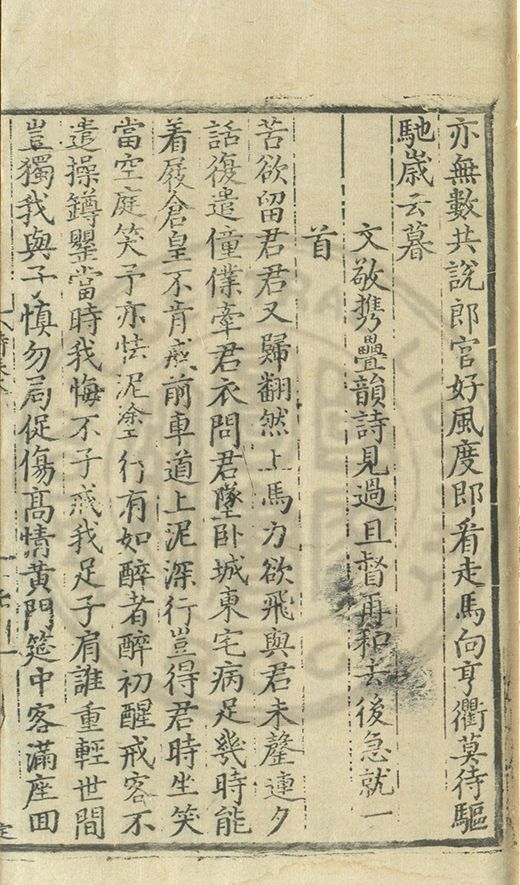 亦無數共說郎官好風度即看走馬向亨衢莫待驅
馳歲云暮
文敬携疊韻詩見過且督再和去後急就一
首
苦欲留君君又歸翻然上馬力欲飛與君未罄連夕
話復遣僮僕牽君衣問君墜卧城東宅病足幾時能
着屐倉皇不肯戒前車道上泥深行豈得君時坐笑
當空庭笑予亦怯泥塗行有如醉者醉初醒戒客不
遣操鐏罌當時我悔不子戒我足子肩誰重輕世間
豈獨我與子慎勿局促傷髙情黄門筵中客滿座回